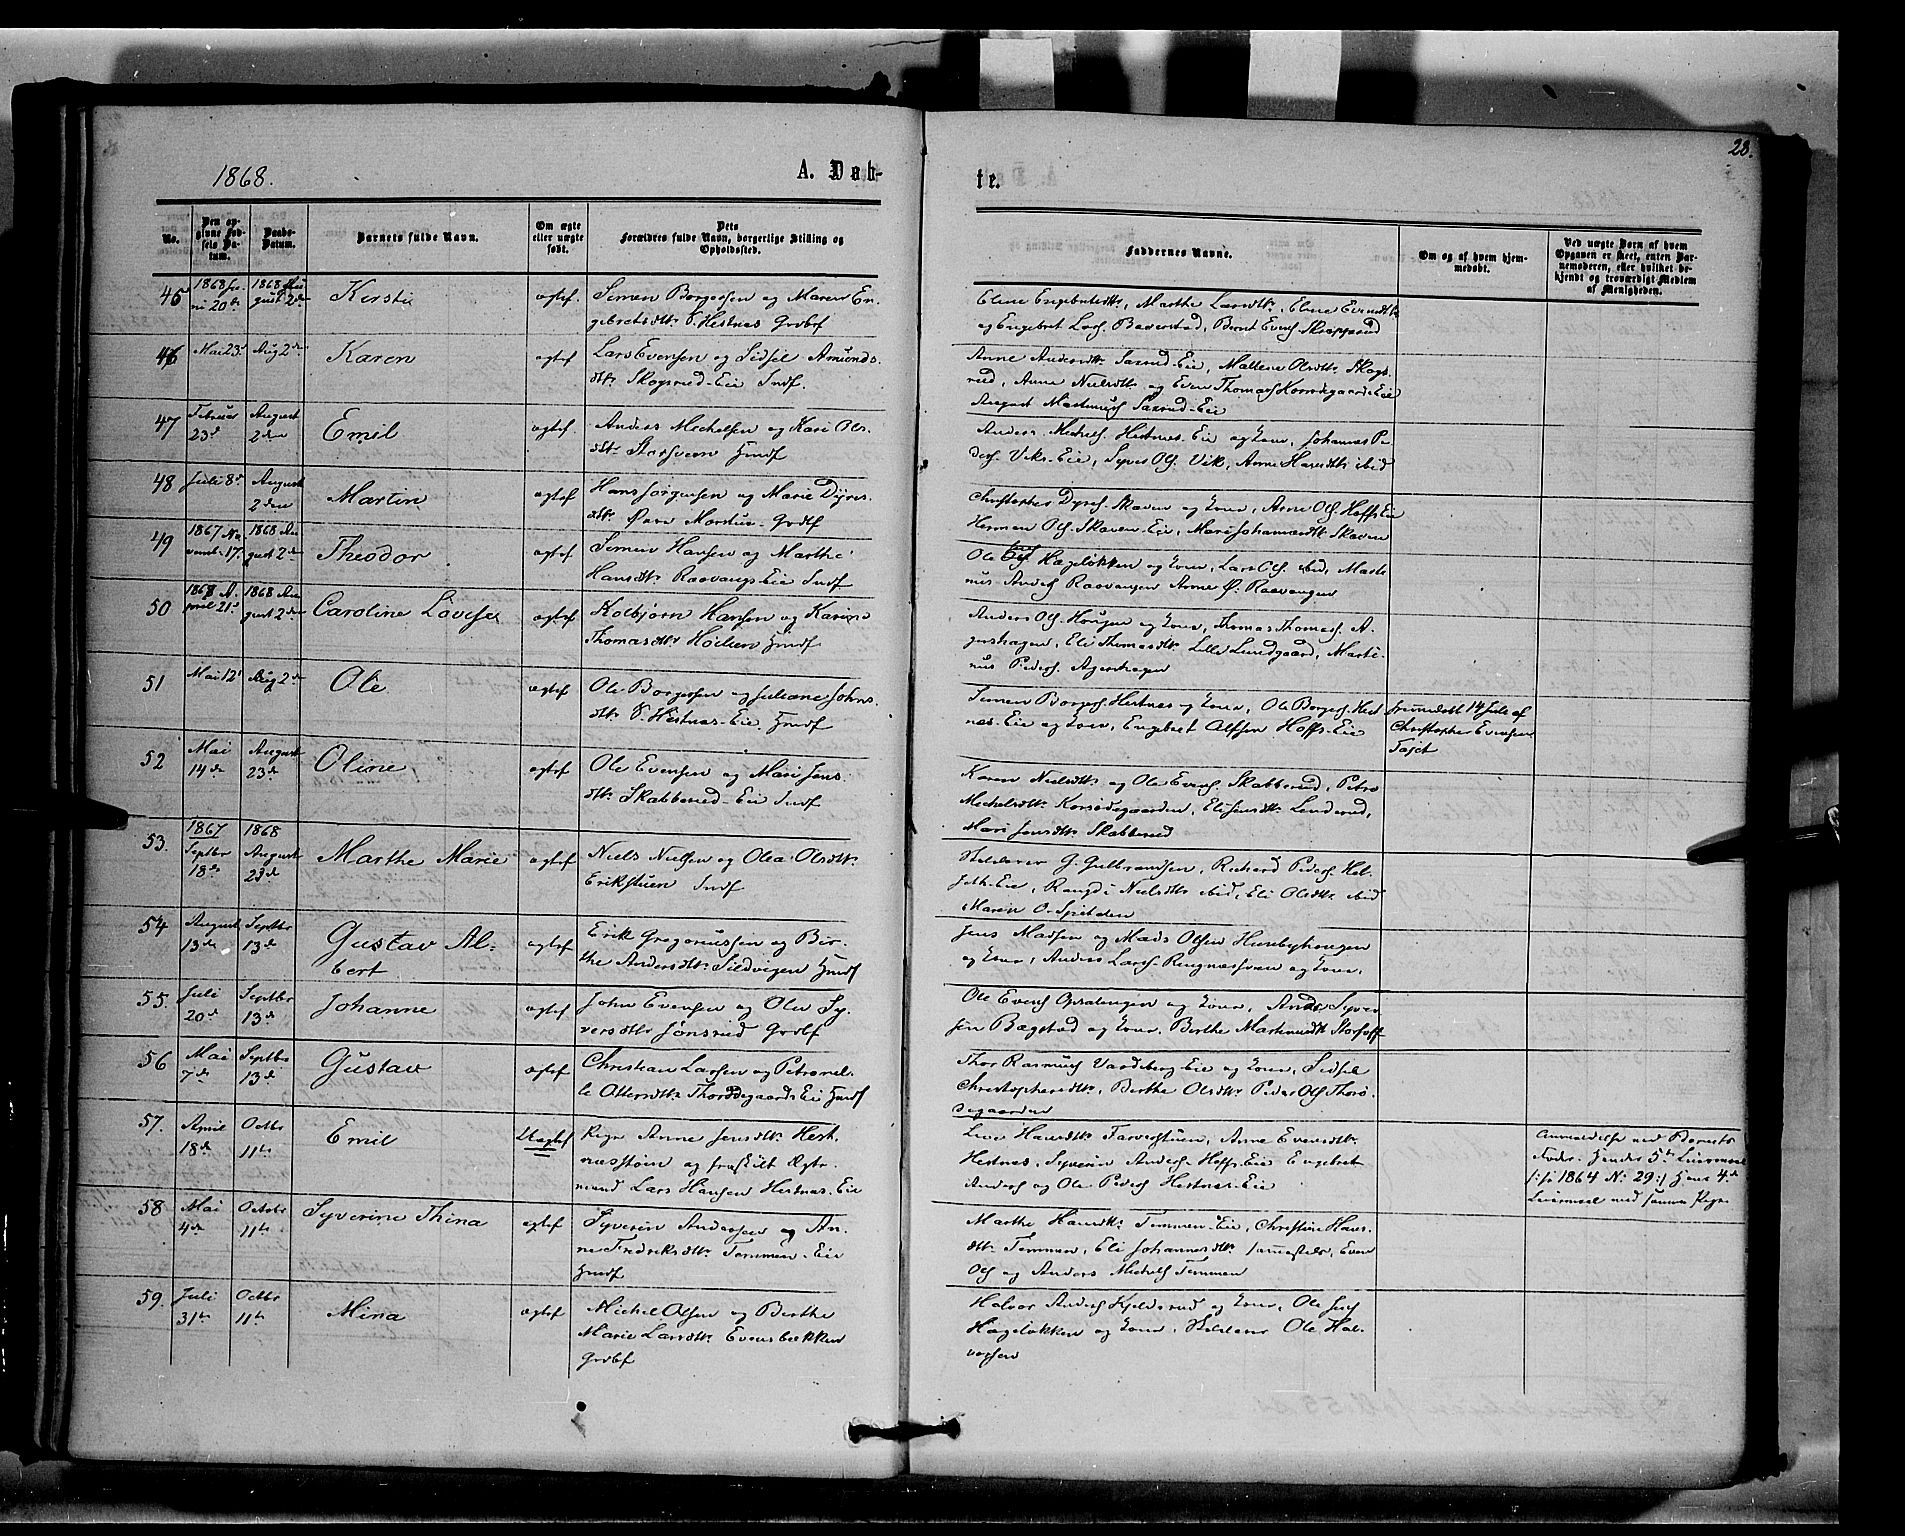 28.
1868.
A. Døb-
te.
No.
Den op-
givne Fød-
sels Da-
tum.
Daabs-
Datum.
Barnets fulde Navn.
Om ægte
eller uægte
født.
Dets
Forældres fulde Navn, borgerlige Stilling og
Opholdssted.
Faddernes Navne.
Om og af hvem hjem-
medøbt.
Ved uægte Børn af hvem
Opgaven er skeet, enten Bar-
nemoderen, eller hvilket be-
kjendt og troværdigt Medlem
af Menigheden.
45
1868 Ju-
ni 20de
1868 Au
gust 2den
Kersti
ægtef
Simen Borgersen og Maren En-
gebretsdtr S. Hestnes Grdbf
Eline Engebretsdtr, Marthe Larsdtr, Eline Evensdtr
og Engebret Lars. Beverstad, Bernt Evens. Skrapperud
46
Mai 23d
Aug 2den
Karen
ægtef
Lars Evensen og Sidsel Amunds
dtr Skogsrud-Eie Indf.
Anne Andersdtr Saxrud-Eie, Mallene Olsdtr Skogs
rud, Anne Nielsdtr og Even Thomas. Korsødegaards Eie
August Martinus. Saxrud-Eie
47
Februar
23d
August
2den
Emil
ægtef.
Anders Mechelsen og Kari Ols
dtr Storsveen Hmdf
Anders Michels. Hestnes-Eie og Kone, Johannes Pe-
ders. Viks-Eie, Syver Ols. Vik, Anne Hansdtr ibid
48
Juli 8d
August
2den
Martin
ægtef
Hans Jørgensen og Marie Dyres
dtr Øvre Morstue Grdbf
Christopher Dyres. Skaven og Kone, Arne Ols. Hoffs Eie
Herman Ols. Skaven-Eie, Mari Johannesdtr Skaven
49
1867 No
vembr 17.
1868 Au
gust 2den
Theodor
ægtef
Simen Hansen og Marthe
Hansdtr Raavangs Eie Indf
Ole Hageløkken og Kone, Lars Ols. ibid, Marti
nus Anders. Raavangen Anne Ø. Raavangen
50
1868 A
pril 21.
1868 Au
gust 2den
Caroline Lovise
ægtef
Kolbjørn Hansen og Karine
Thomasdtr Hoelsen Hmdf
Anders Ols. Hougen og Kone, Thomas Thomas. A-
gershagen, Eli Thomasdtr Lille Lundgaard, Marti-
nus Peders. Agershagen
51
Mai 12t
Aug 2den
Ole
ægtef
Ole Borgersen og Juliane Johns
dtr S. Hestnes-Eie Hmdf
Simen Borgers. Hestnes og Kone, Ole Borgers. Hest
nes-Eie og Kone, Engebret Alfsen Hoffs-Eie
hjemmedøbt 14 Juli af
Christopher Evensen
Tajet
52
Mai
14de
August
23de
Oline
ægtef
Ole Evensen og Mari Jens
dtr Skabberud-Eie Indf
Karen Nielsdtr og Ole Evens. Skabberud, Petro
Mechelsdtr Korsødegaarden, Eli Jensdtr Lunderud,
Mari Jensdtr Skabberud
53.
1867
Septbr
18de
1868
August
23de
Marthe Marie
ægtef
Niels Nielsen og Olea Olsdtr
Erikstuen Indf
Skolelærer G. Gulbrandsen, Richard Peders. Hel-
seth-Eie, Rangdi Nielsdtr ibid, Eli Olsdtr ibid
Maren O. Spitalen
54
August
13de
Septbr
13de
Gustav Al-
bert
ægtef
Erik Gregoriussen og Ber-
the Andersdtr Sildvigen Hmdf
Jens Madsen og Mads Olsen Huusbyhougen
og Kone, Anders Lars. Ringnessveen og Kone,
55.
Juli
20de
Septbr
13de
Johanne
ægtef
John Evensen og Olea Sy-
versdtr Jønsrud Grdbf
Ole Evens. Opsalengen og Kone, Anders Syver
sen Bægstad og Kone, Berthe Martinusdtr Storhoff
56
Mai
7de
Septbr
13de
Gustav
ægtef
Christian Larsen og Petronel-
le Ottersdtr Thorødegaards Eie Hmdf
Thor Rasmus. Vardeberg-Eie og Kone, Sidsel
Christophersdtr, Berthe Olsdtr Peder Ols. Thorø
degaarden
57.
April
18de
Octbr
11te
Emil
Uægtef
Pige Anne Jensdtr Hest
nesstøen og fraskilt Ægte
mand Lars Hansen Hestnes-Eie
Live Hansdtr Farverstuen, Anne Evensdtr
Hestnes, Syverin Anders. Hoffs-Eie Engebret
Anders. og Ole Peders. Hestnes-Eie
Anmeldelse ved Barnets
Moder. Hendes 5te Leiermaal
/: fr 1864 No. 29 :/ Hans 4de
Leiermaal med samme Pige
58
Mai
4de
Octobr
11te
Syverine Thina
ægtef
Syverin Andersen og An-
ne Fredriksdtr Temmen-Eie
Hmdf
Marthe Hansdtr Temmen-Eie, Christine Hans
dtr Temmen, Eli Johannesdtr sammesteds, Even
Ols og Anders Michels Temmen
59.
Juli
31te
Octbr
11te
Mina
ægtef
Michel Olsen og Berthe
Marie Larsdtr Evensbekken
Grdbf
Halvor Anders. Kjelderud og Kone, Ole Jens.
Hageløkken og Kone, Skolelærer Ole Hal-
vorsen